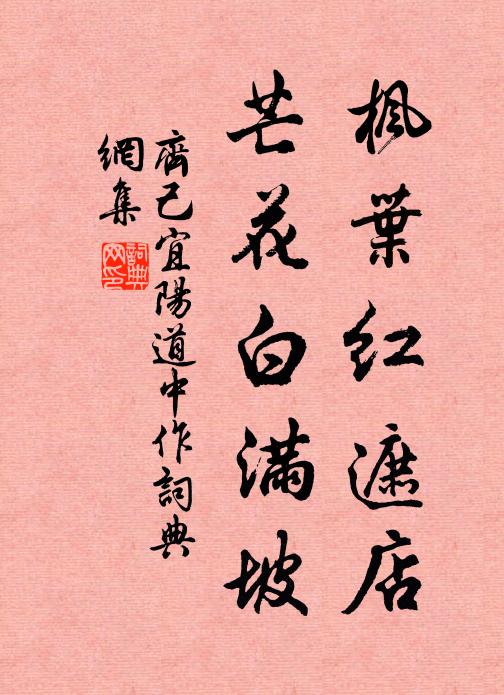 楓葉紅遮店
芒花白滿坡
齊己宜陽道中作詞典
網集
詞典
网印